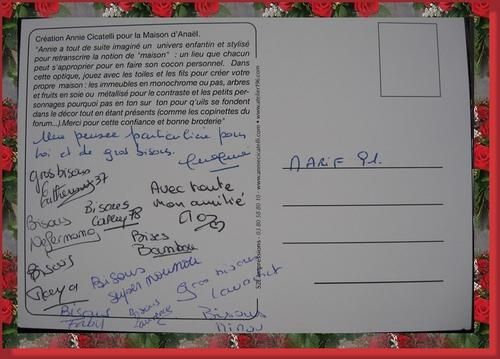 Création Annie Cicatelli pour la Maison d'Anaël.
"Annie a tout de suite imaginé un univers enfantin et stylisé
pour retranscrire la notion de "maison" : un lieu que chacun
peut s'approprier pour en faire son cocon personnel. Dans
cette optique, jouez avec les toiles et les fils pour créer votre
propre maison : les immeubles en monochrome ou pas, arbres
et fruits en soie ou métallisé pour le contraste et les petits per-
sonnages pourquoi pas en ton sur ton pour qu'ils se fondent
dans le décor tout en étant présents (comme les copinettes du
forum...).Merci pour cette confiance et bonne broderie"
Une pensée particulière pour
toi et de gros bisous.
gros bisous
Catherine37
Bisous
Nefermoma
Bisous
Bisous
Cathy78
Avec toute
mon amitié
Bises
Bambou
Bisous
supernounou
gros bisous
Bisous
Bisous
Bisous
Minou
MARIE Pl.
www.anniecicatelli.com • www.atelier196.com
impressions - 03 80 58 80 10